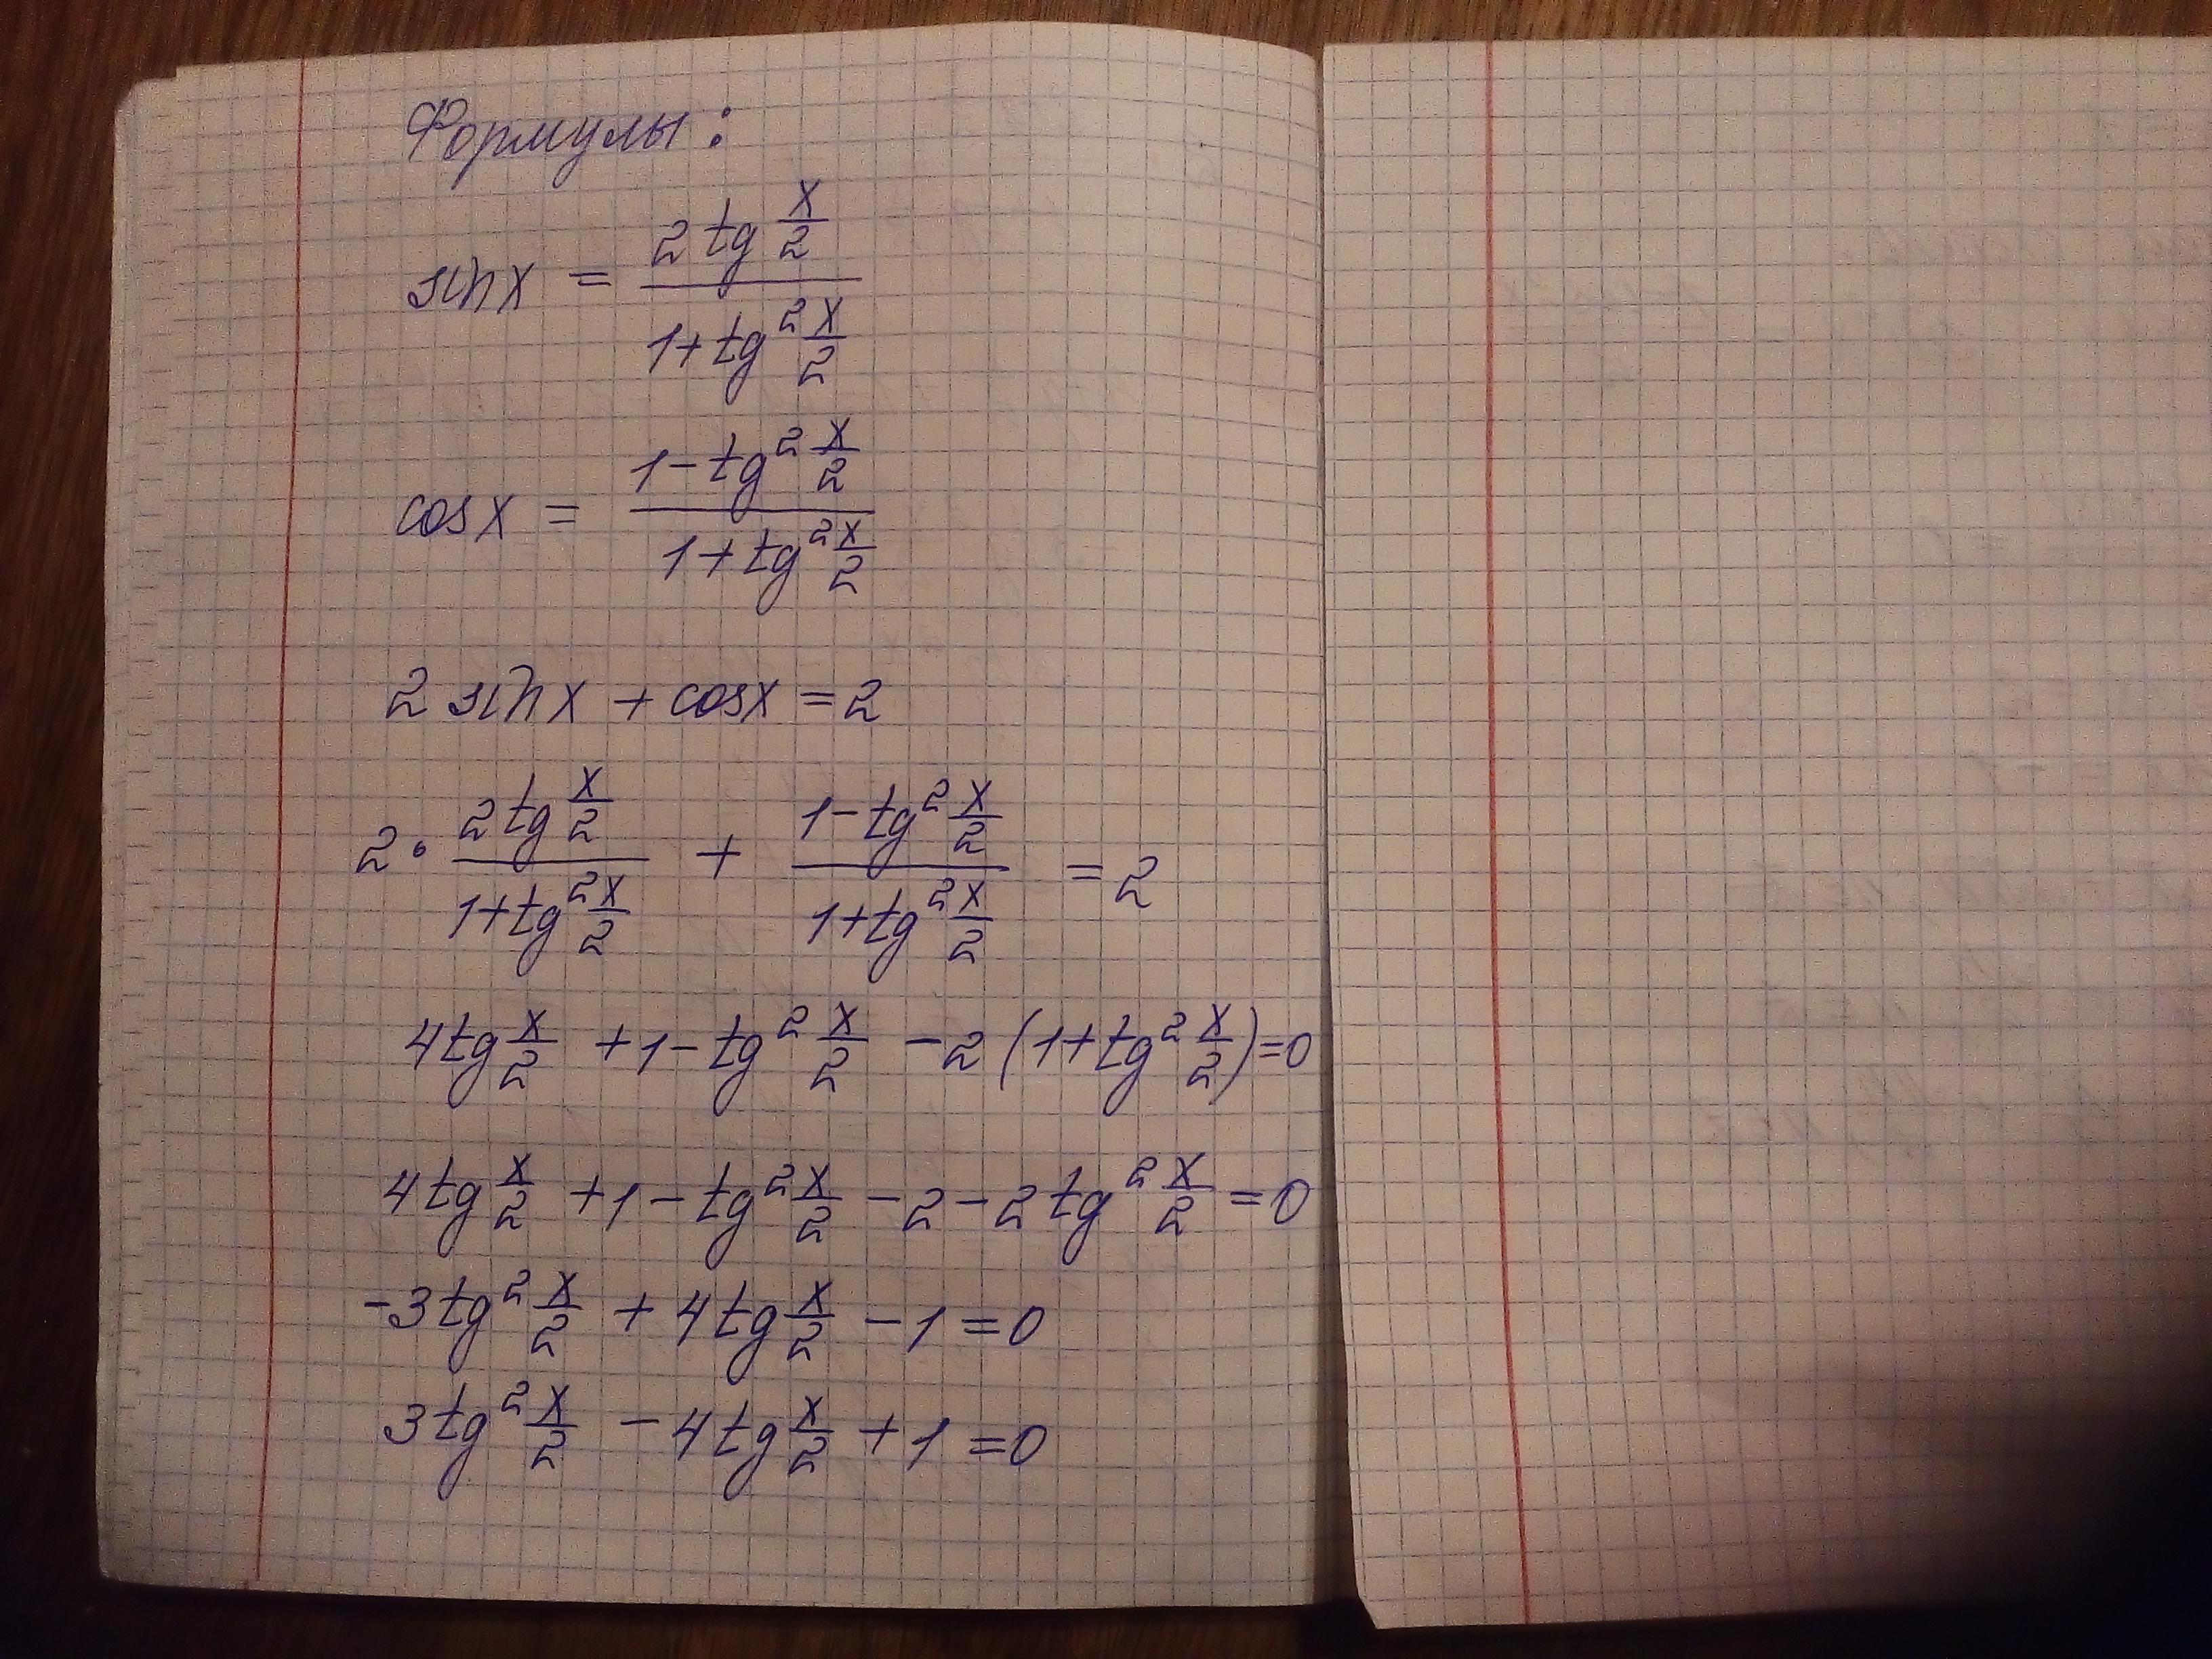 Формулы:
sin x = (2 tg x/2) / (1 + tg² x/2)
cos x = (1 - tg² x/2) / (1 + tg² x/2)
2 sin x + cos x = 2
2 · (2 tg x/2) / (1 + tg² x/2) + (1 - tg² x/2) / (1 + tg² x/2) = 2
4 tg x/2 + 1 - tg² x/2 - 2 (1 + tg² x/2) = 0
4 tg x/2 + 1 - tg² x/2 - 2 - 2 tg² x/2 = 0
-3 tg² x/2 + 4 tg x/2 - 1 = 0
3 tg² x/2 - 4 tg x/2 + 1 = 0